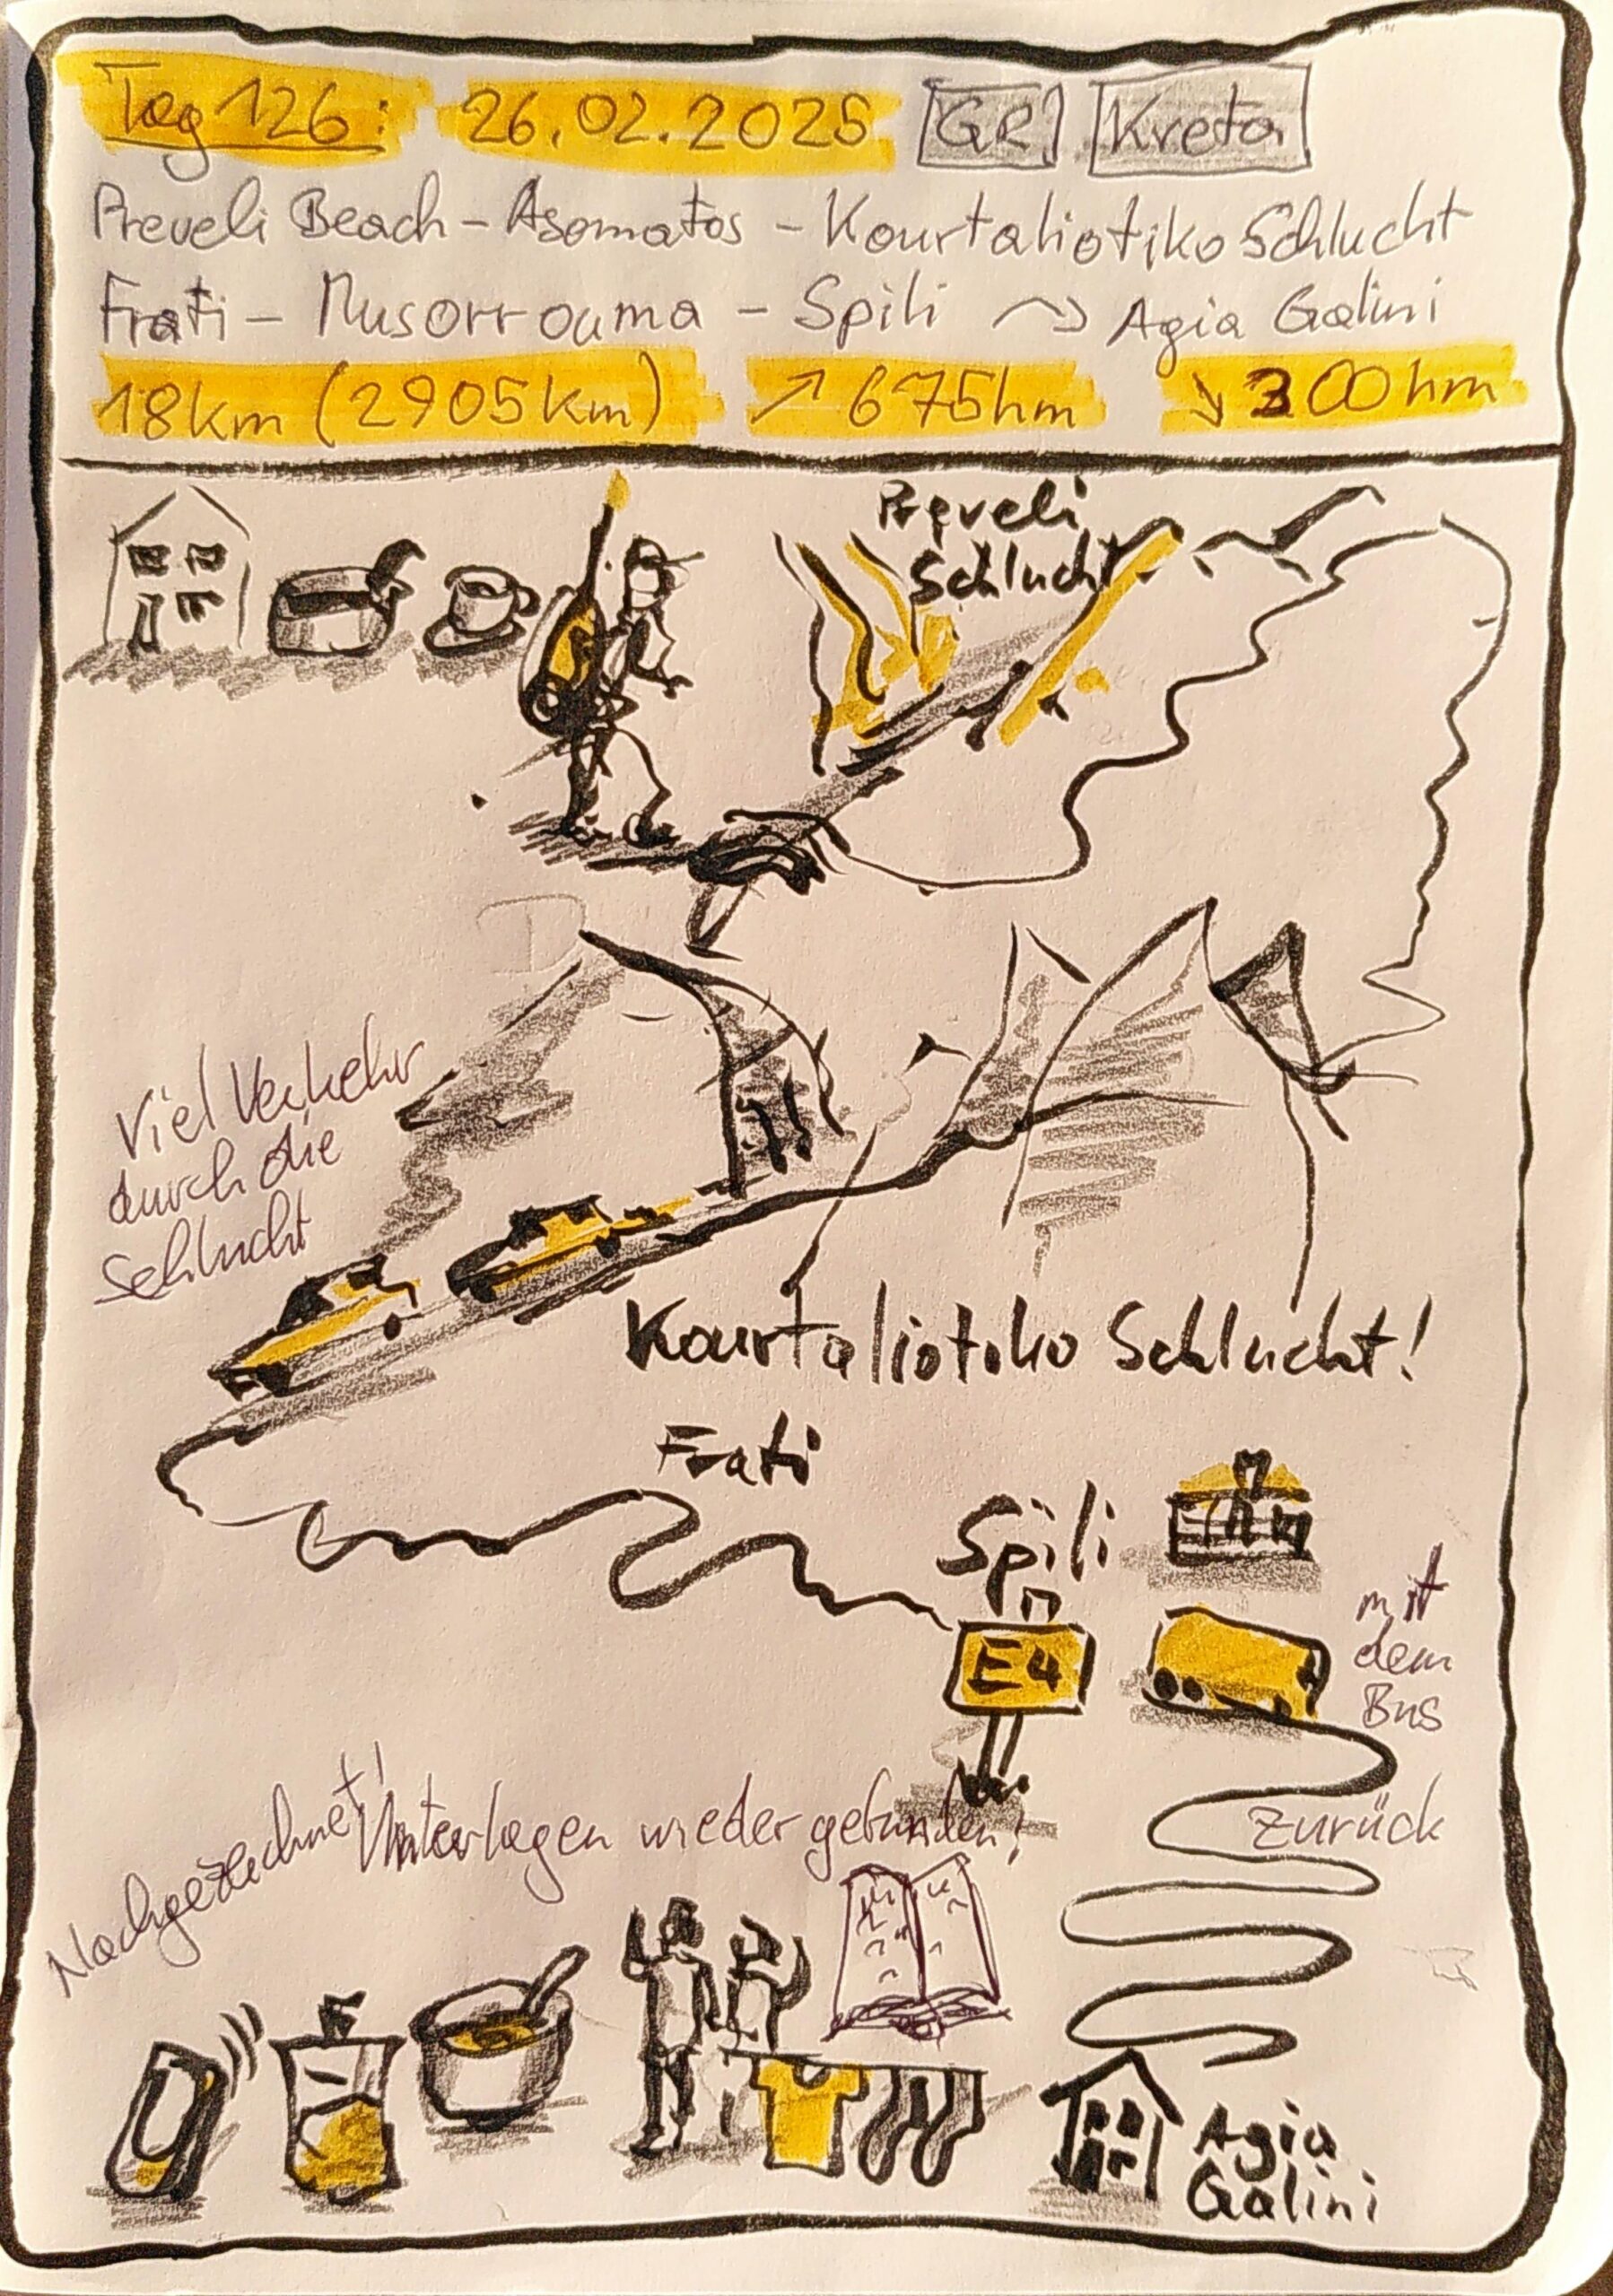 Tag 126: 26.02.2025 GR Kreta
Preveli Beach - Asomatos - Kourtaliotiko Schlucht
Frati - Musorrouma - Spili → Agia Galini
18km (2905km) ↗ 675hm ↘ 300hm
Preveli
Schlucht
Viel Verkehr
durch die
Schlucht
Kourtaliotiko Schlucht!
Frati
Spili
E4
mit
dem
Bus
zurück
Nachgezeichnet! Unterlagen wieder gefunden!
Agia
Galini